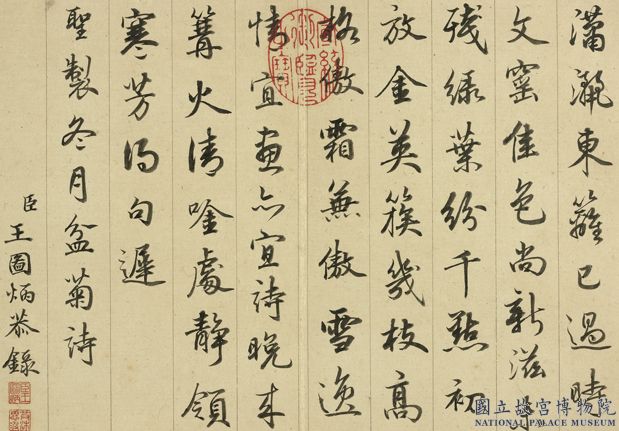 瀟灑東籬已過時
文窰佳色尚新滋
殘綠葉紛千點初
放金英簇幾枝高
格傲霜兼傲雪逸
情宜畫亦宜詩晚來
篝火清唫處靜領
寒芳得句遲
聖製冬月盆菊詩
臣王圖炳恭錄
國立故宮博物院
NATIONAL PALACE MUSEUM